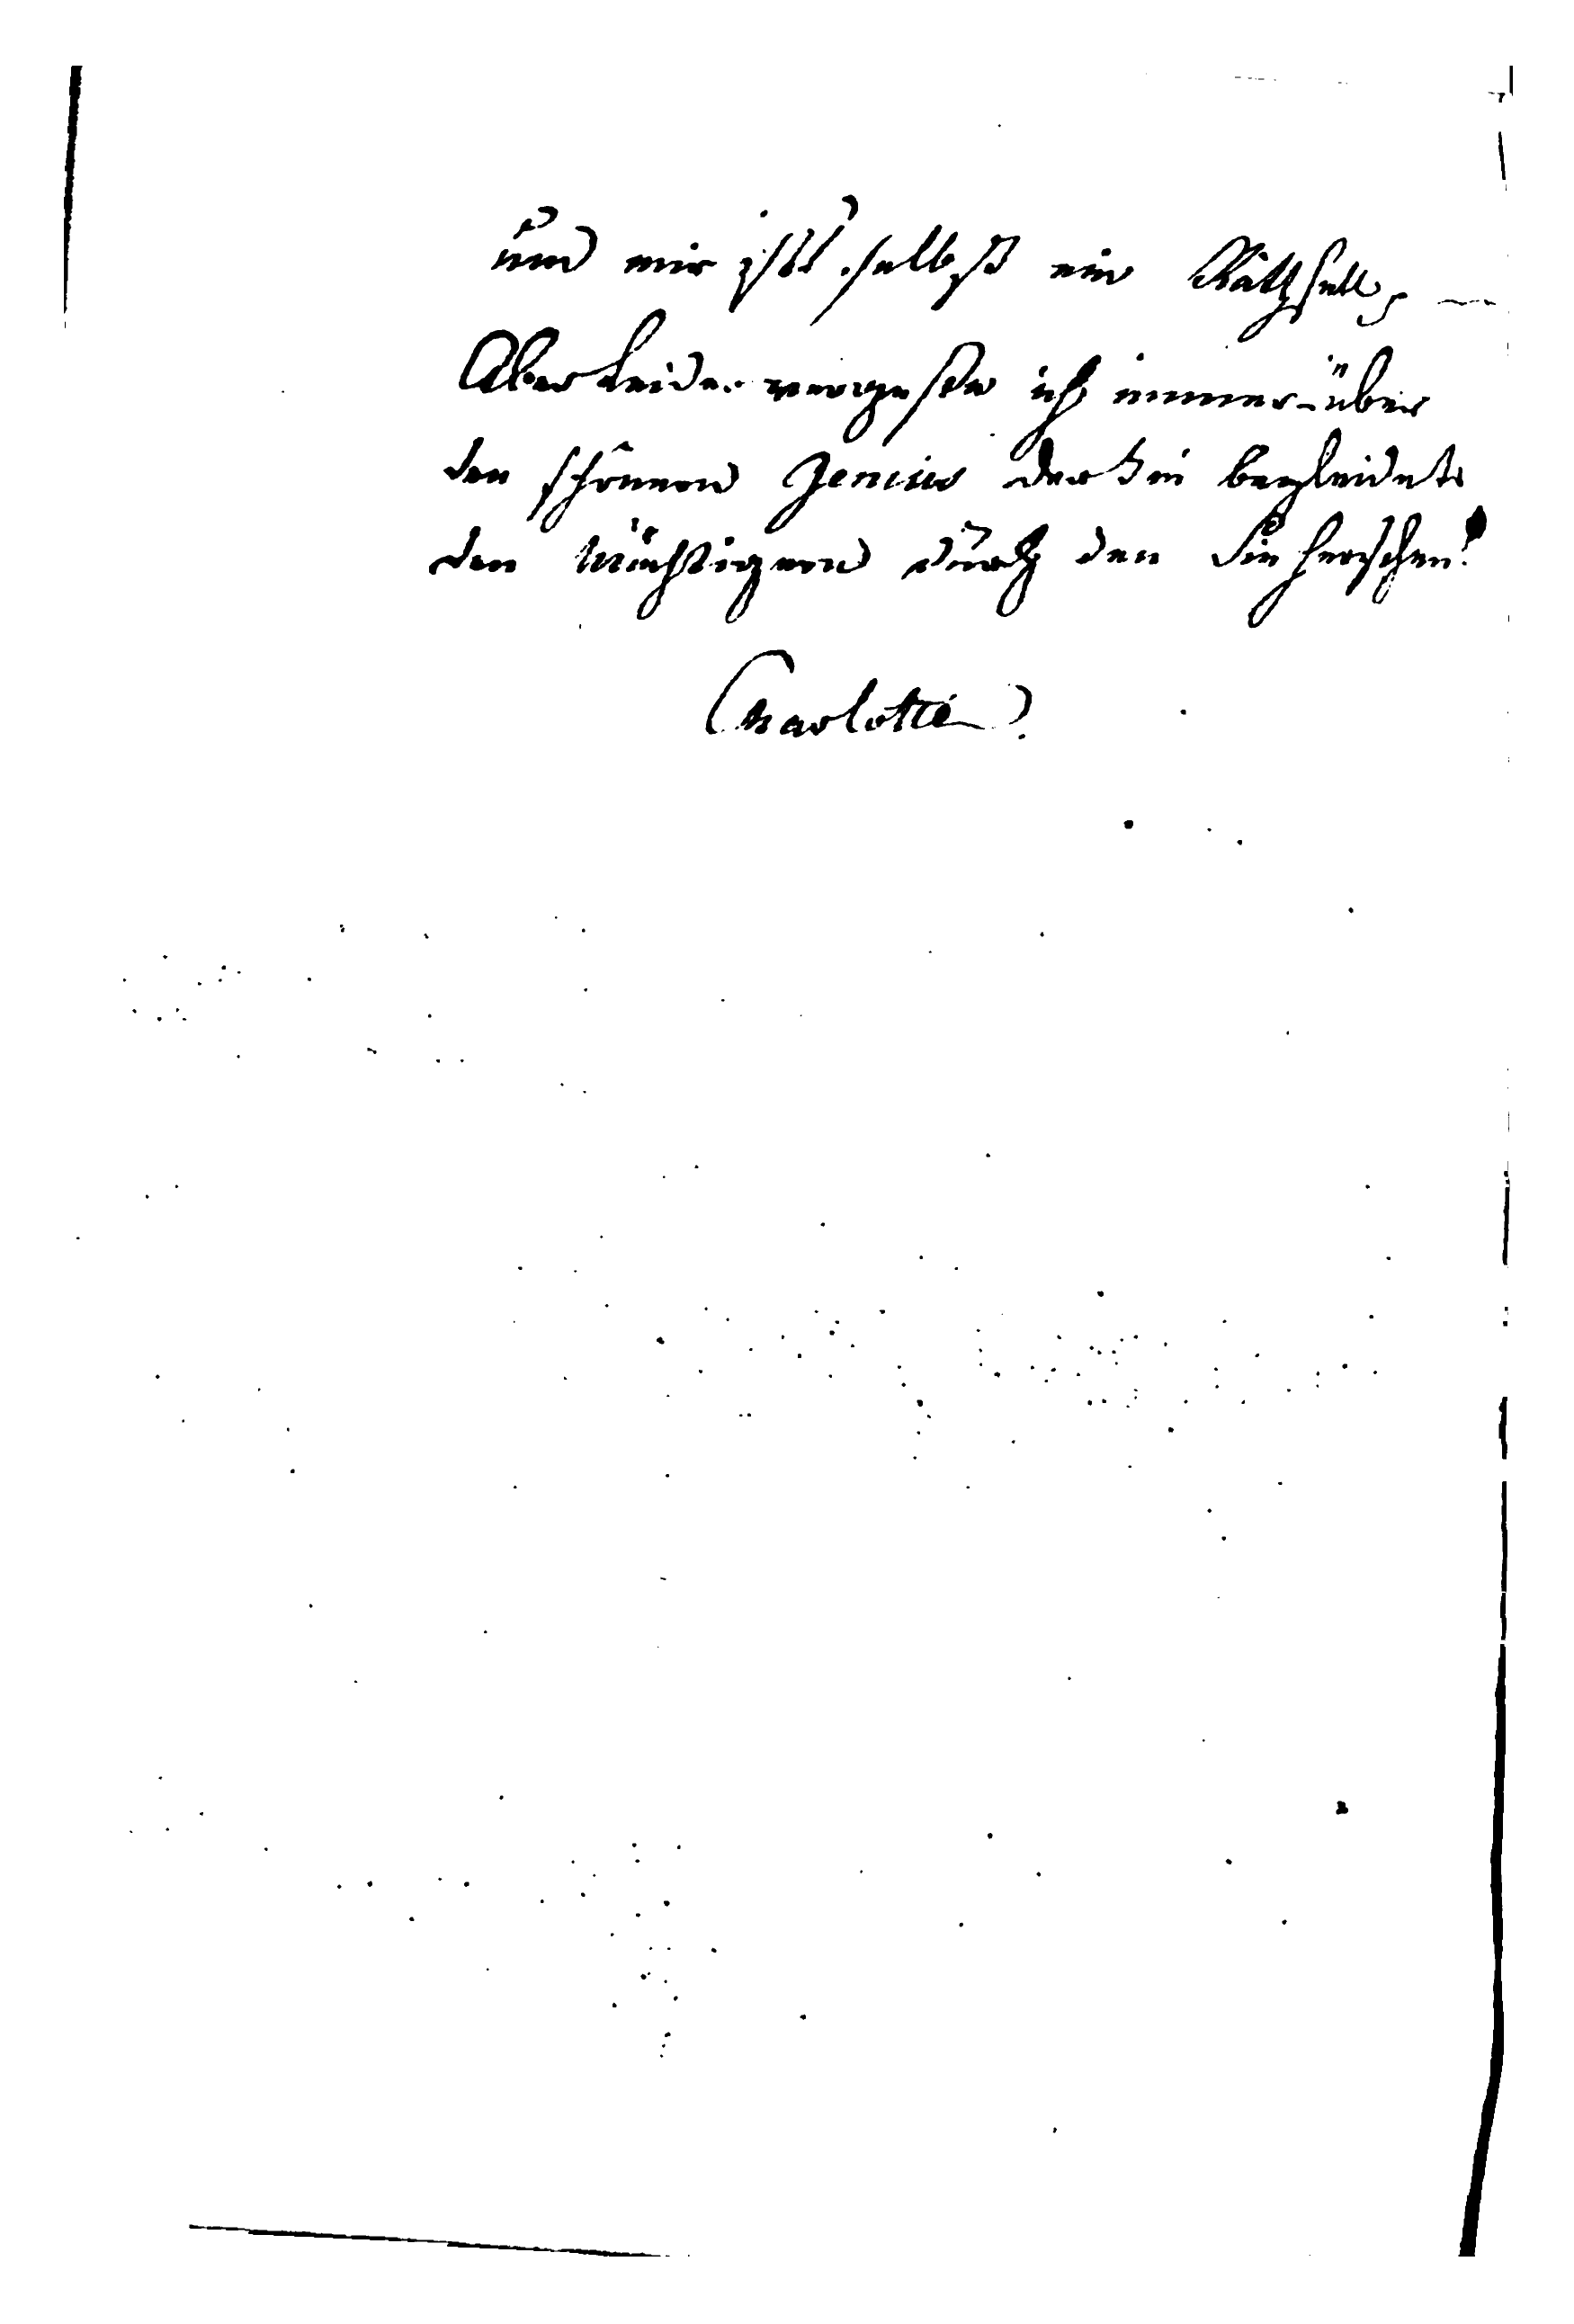 und mir ists selbst ein Räthsell, —
Aber leider vergeße ich immer über
den schönern Genius der Sie begleidet
den mächtigern durch den Sie herschen!
Charlotte